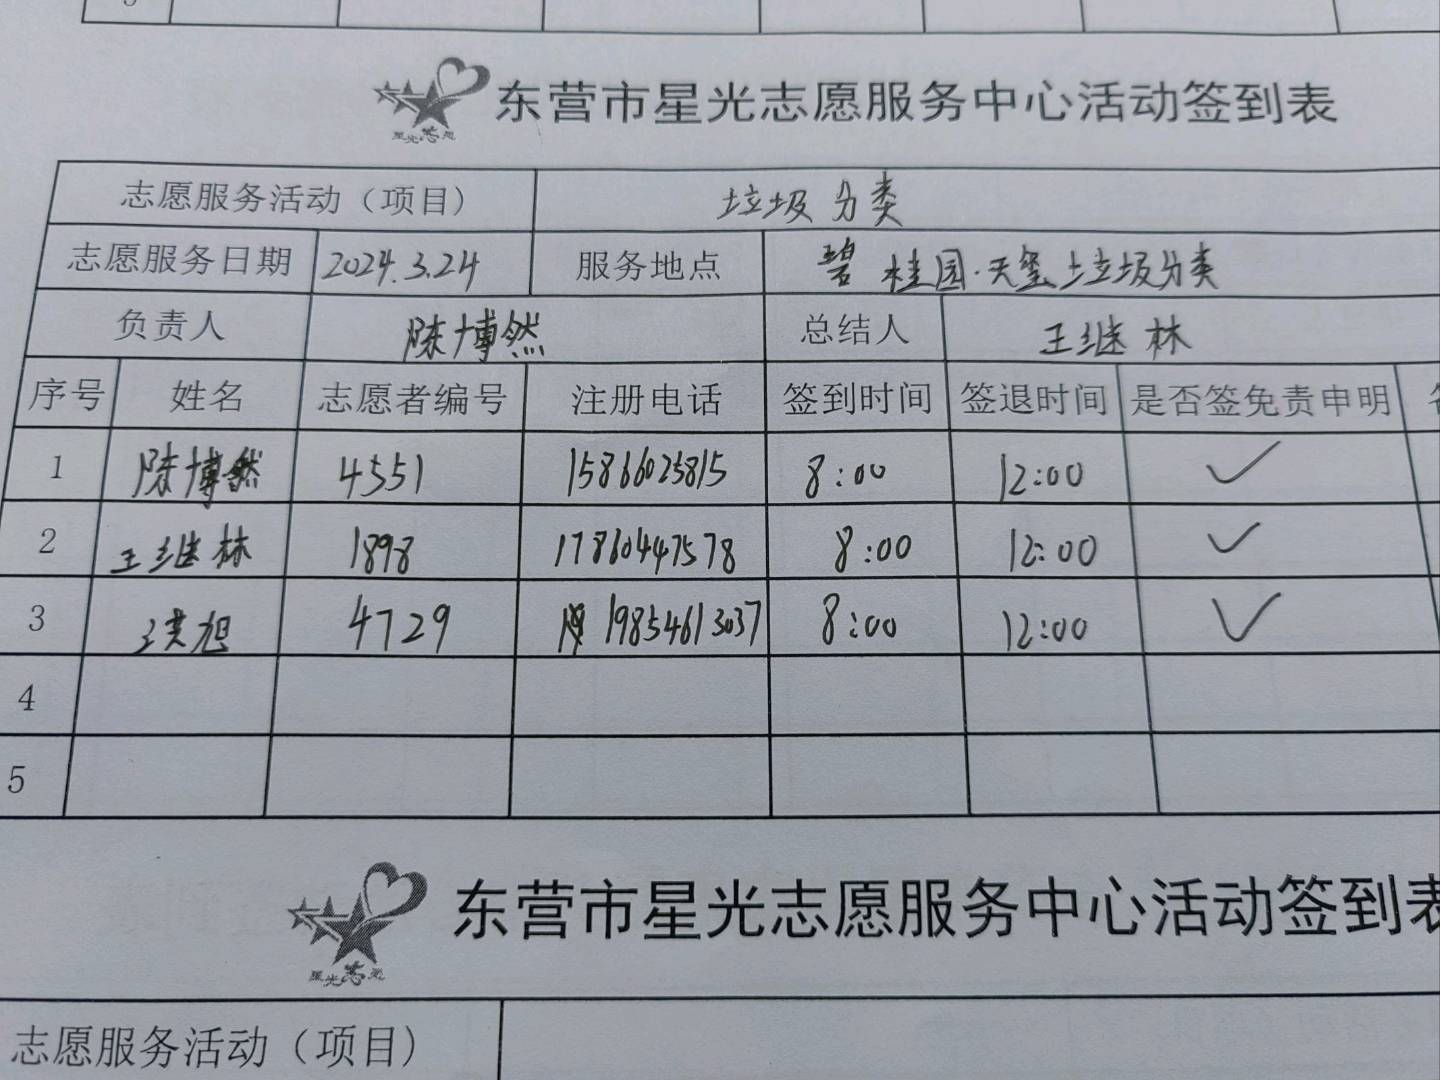 东营市星光志愿服务中心活动签到表
星光志愿
志愿服务活动（项目） 垃圾分类
志愿服务日期 2024.3.24 服务地点 碧桂园·天玺垃圾分类
负责人 陈博然 总结人 王继林
序号 姓名 志愿者编号 注册电话 签到时间 签退时间 是否签免责申明
1 陈博然 4551 15866025815 8:00 12:00 ✓
2 王继林 1898 17860447578 8:00 12:00 ✓
3 旭 4729 19854613037 8:00 12:00 ✓
4
5
东营市星光志愿服务中心活动签到表
星光志愿
志愿服务活动（项目）